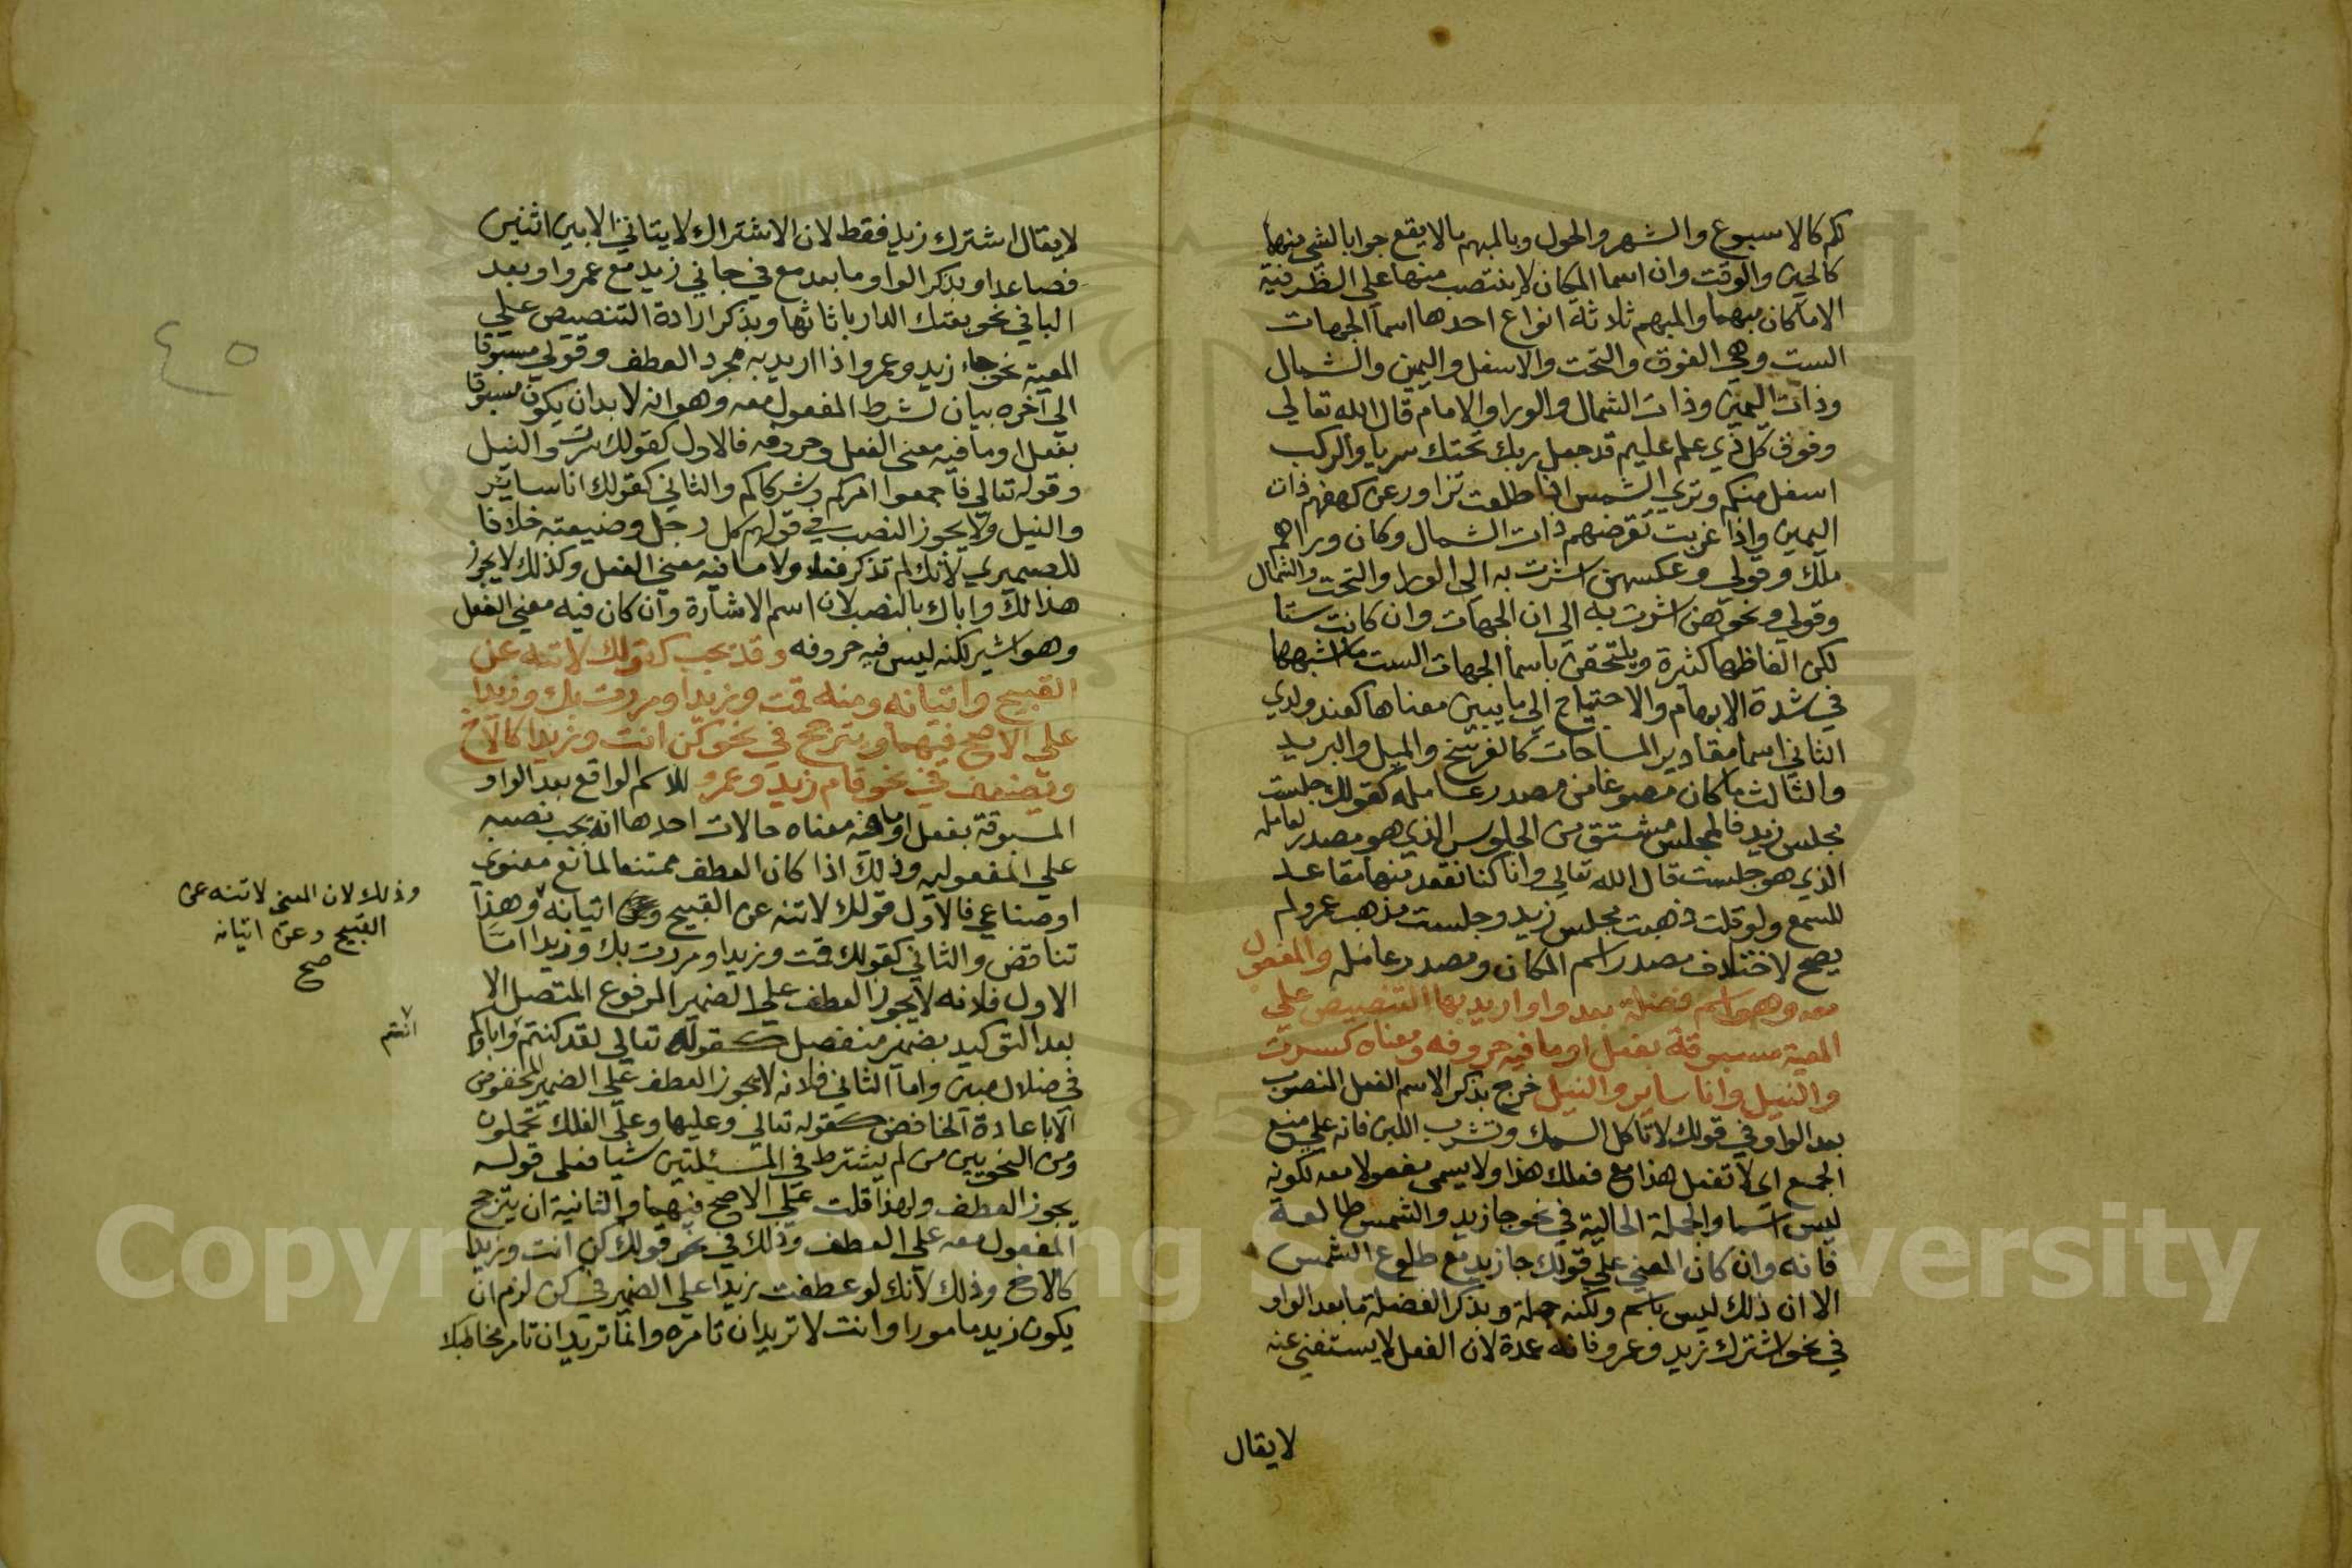 لكم كالاسبوع والشهر والحول وبالمبهم مالايقع جوابا لشي منها
كالحين والوقت وان اسما المكان لا ينتصب منها على الظرفية
الاماكان مبهما والمبهم ثلاثة انواع احدها اسما الجهات
الست وهي الفوق والتحت والاسفل واليمين والشمال
وذات اليمين وذات الشمال والورا والامام قال الله تعالي
وفوق كل ذي علم عليم قد جعل ربك تحتك سريا والركب
اسفل منكم وتري الشمس اذا طلعت تزاور عن كهفهم ذات
اليمين واذا غربت تقرضهم ذات الشمال وكان وراهم
ملك وقولي وعكسهن اشرت به الي الورا والتحت والشمال
وقولي ونحوهن اشرت به الي ان الجهات وان كانت ستا
لكن الفاظها كثيرة ويلتحق باسما الجهات الست ما اشبهها
في شدة الابهام والاحتياج الي ما يبين معناها كعند ولدي
الثاني اسما مقادير المساحات كالفرسخ والميل والبريد
والثالث ما كان مصوغا من مصدر عامله كقولك جلست
مجلس زيد فالمجلس مشتق من الجلوس الذي هو مصدر لعامله
الذي هو جلست قال الله تعالي وانا كنا نقعد منها مقاعد
للسمع ولو قلت ذهبت مجلس زيد وجلست مذهب عمرو لم
يصح لاختلاف مصدر اسم المكان ومصدر عامله والمفعول
معه وهو اسم فضلة بعد واو اريد بها التنصيص علي
المعية مسبوقة بفعل او ما فيه حروفه ومعناه كسرت
والنيل وانا ساير والنيل خرج بذكر الاسم الفعل المنصوب
بعد الواو في قولك لا تاكل السمك وتشرب اللبن فانه علي منع
الجمع اي لا تفعل هذا مع فعلك هذا ولا يسمى مفعولا معه لكونه
ليس اسما والجملة الحالية في نحو جا زيد والشمس طالعة
فانه وان كان المعني علي قولك جا زيد مع طلوع الشمس
الا ان ذلك ليس باسم ولكنه جملة وبذكر الفضلة ما بعد الواو
في نحو اشترك زيد وعمرو فانه عمدة لان الفعل لا يستغني عنه
لا يقال
لا يقال اشترك زيد فقط لان الاشتراك لا يتاتي الا بين اثنين
فصاعدا وبذكر الواو ما بعد مع في جاني زيد مع عمرو او بعد
البا في نحو بعتك الدار باثاثها وبذكر ارادة التنصيص علي
المعية نحو جاء زيد وعمرو اذا اريد به مجرد العطف وقولي مسبوقا
الي آخره بيان لشرط المفعول معه وهو انه لا بد ان يكون مسبوقا
بفعل او ما فيه معنى الفعل وحروفه فالاول كقولك سرت والنيل
وقوله تعالي فاجمعوا امركم وشركاكم والثاني كقولك انا سائر
والنيل ولا يجوز النصب في قولهم كل رجل وضيعته خلافا
للصيمري لانك لم تذكر فعلا ولا ما فيه معني الفعل وكذلك لا يجوز
هذا لك واباك بالنصب لان اسم الاشارة وان كان فيه معني الفعل
وهو اشير لكنه ليس فيه حروفه وقد يجب كقولك لا تنه عن
القبيح واتيانه ومنه قمت وزيدا ومررت بك وزيدا
علي الاصح فيهما ويترجح في نحو كن انت وزيدا كالاخ
ويضعف في نحو قام زيد وعمرو للاسم الواقع بعد الواو
المسبوقة بفعل او ما فيه معناه حالات احدها انه يجب نصبه
علي المفعولية وذلك اذا كان العطف ممتنعا لمانع معنوي
او صناعي فالاول قولك لا تنه عن القبيح واتيانه وهذا
تناقض والثاني كقولك قمت وزيدا ومررت بك وزيدا اما
الاول فلانه لا يجوز العطف علي الضمير المرفوع المتصل الا
بعد التوكيد بضمير منفصل كقوله تعالي لقد كنتم واباوكم
في ضلال مبين واما الثاني فلانه لا يجوز العطف علي الضمير المخفوض
الا باعادة الخافض كقوله تعالي وعليها وعلي الفلك تحملون
ومن النحويين من لم يشترط في المسئلتين شيا فعلى قوله
يجوز العطف ولهذا قلت علي الاصح فيهما والثانية ان يترجح
المفعول معه علي العطف وذلك في نحو قولك كن انت وزيدا
كالاخ وذلك لانك لو عطفت زيدا علي الضمير في كن لزم ان
يكون زيد مامورا وانت لا تريد ان تامره وانما تريد ان تامر مخاطبك
وذلك لان المعني لا تنه عن
القبيح وعن اتيانه
صح
انتم
٤٥
Copyright © King Saud University